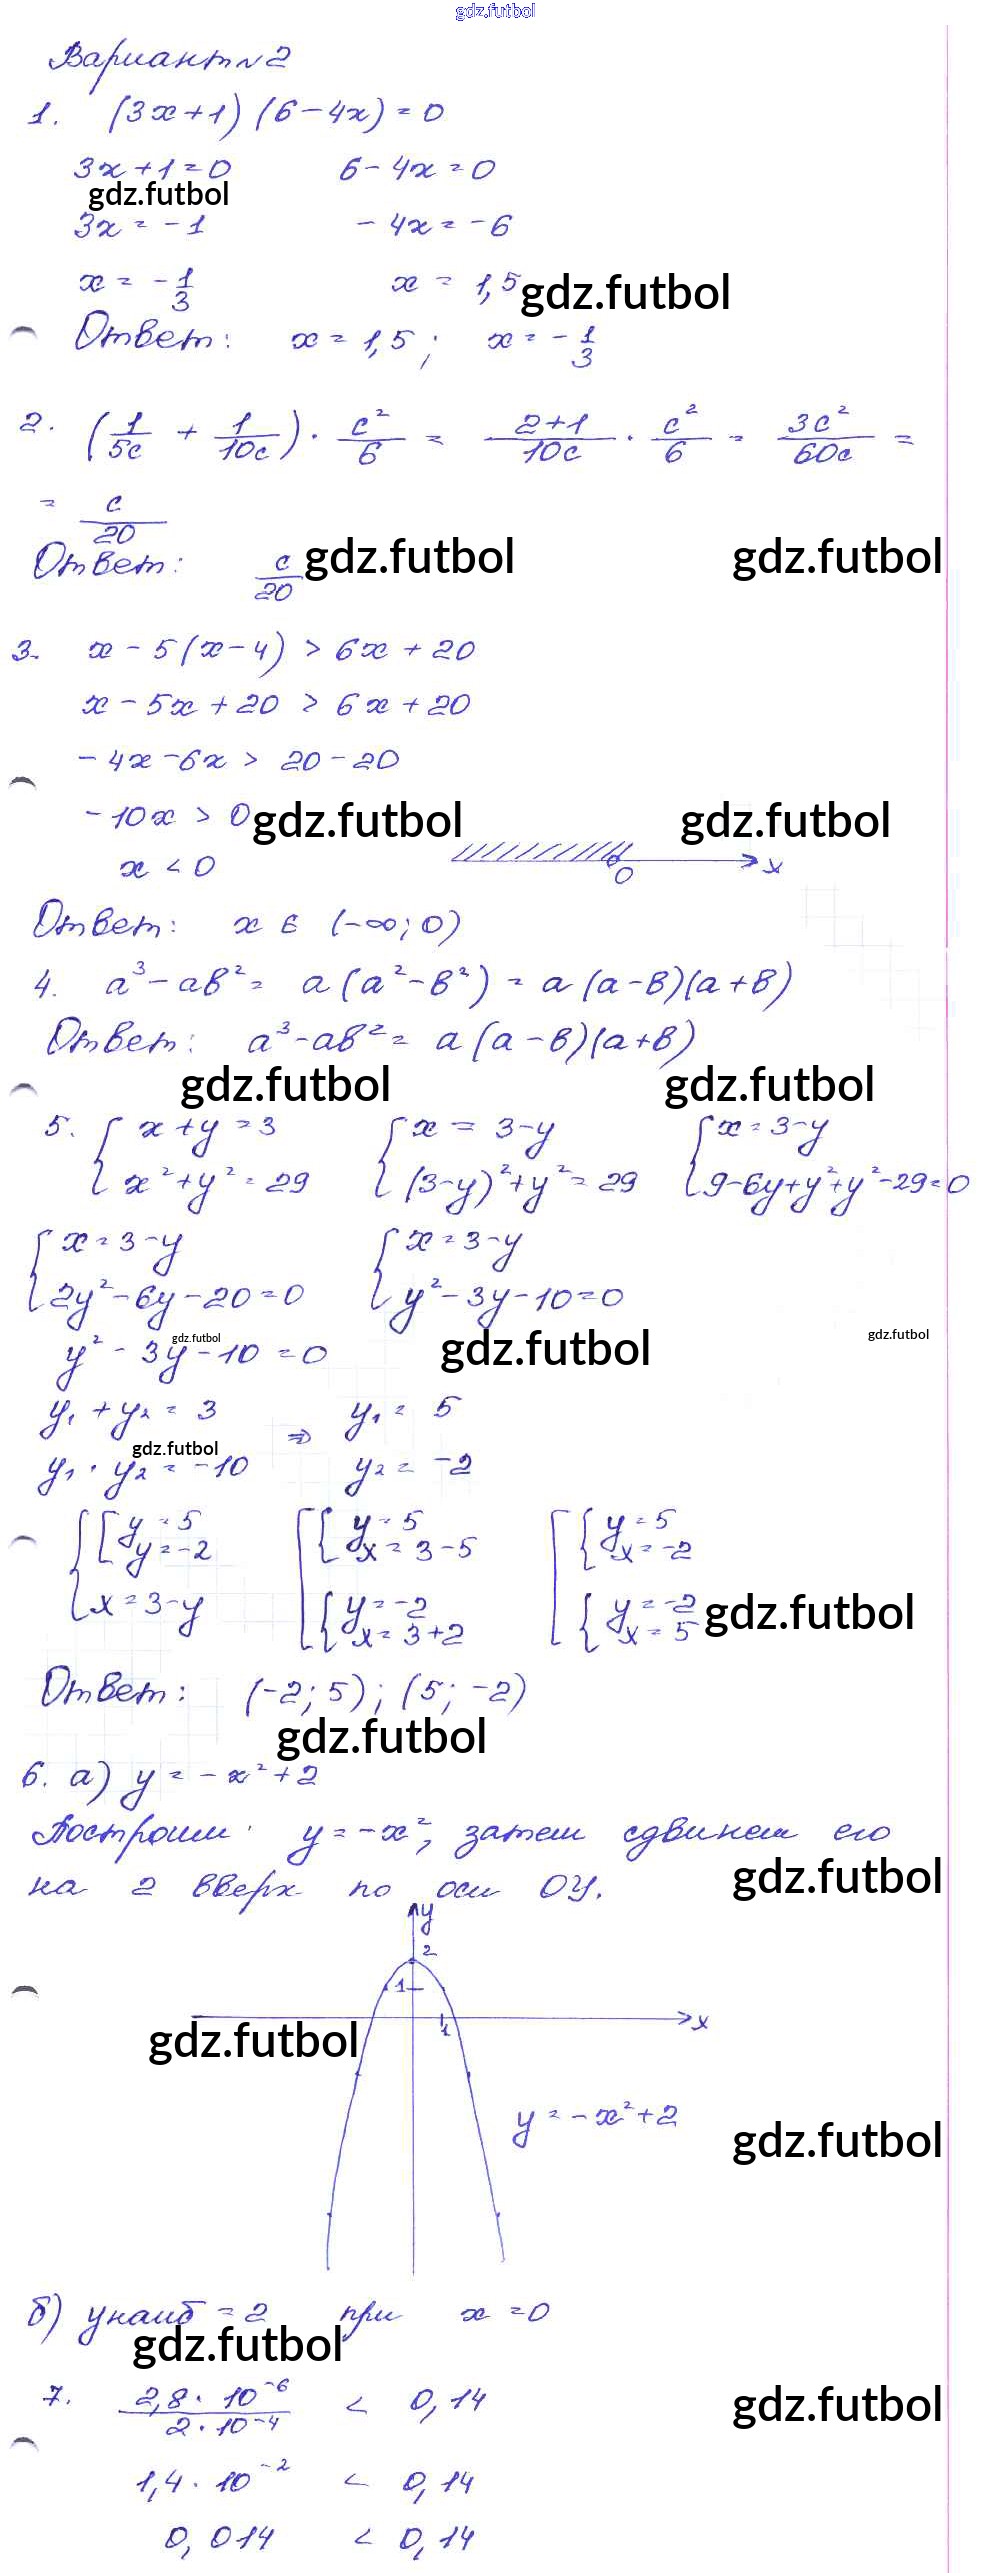 gdz.futbol
Вариант №2
1. (3x+1)(6-4x)=0
3x+1=0 6-4x=0
gdz.futbol
3x=-1 -4x=-6
x=-1/3 x=1,5 gdz.futbol
Ответ: x=1,5; x=-1/3
2. (1/5c + 1/10c) · c²/6 = 2+1/10c · c²/6 = 3c²/60c =
= c/20
Ответ: c/20 gdz.futbol gdz.futbol
3. x-5(x-4) > 6x+20
x-5x+20 > 6x+20
-4x-6x > 20-20
-10x > 0 gdz.futbol gdz.futbol
x < 0 0 x
Ответ: x ∈ (-∞; 0)
4. a³-ab² = a(a²-b²) = a(a-b)(a+b)
Ответ: a³-ab² = a(a-b)(a+b)
gdz.futbol gdz.futbol
5. { x+y=3 { x=3-y { x=3-y
x²+y²=29 (3-y)²+y²=29 9-6y+y²+y²-29=0
{ x=3-y { x=3-y
2y²-6y-20=0 y²-3y-10=0
gdz.futbol gdz.futbol gdz.futbol
y²-3y-10=0
y₁+y₂=3 ⇒ y₁=5
gdz.futbol
y₁·y₂=-10 y₂=-2
{ [ y=5 [ { y=5 [ { y=5
y=-2 x=3-5 x=-2
x=3-y { y=-2 { y=-2 gdz.futbol
x=3+2 x=5
Ответ: (-2; 5); (5; -2)
gdz.futbol
6. а) y=-x²+2
Построим y=-x², затем сдвинем его
на 2 вверх по оси OY. gdz.futbol
y
2
1
x
1
gdz.futbol
y=-x²+2
gdz.futbol
б) yнаиб=2 при x=0
gdz.futbol
7. 2,8·10⁻⁶/2·10⁻⁴ < 0,14 gdz.futbol
1,4·10⁻² < 0,14
0,014 < 0,14